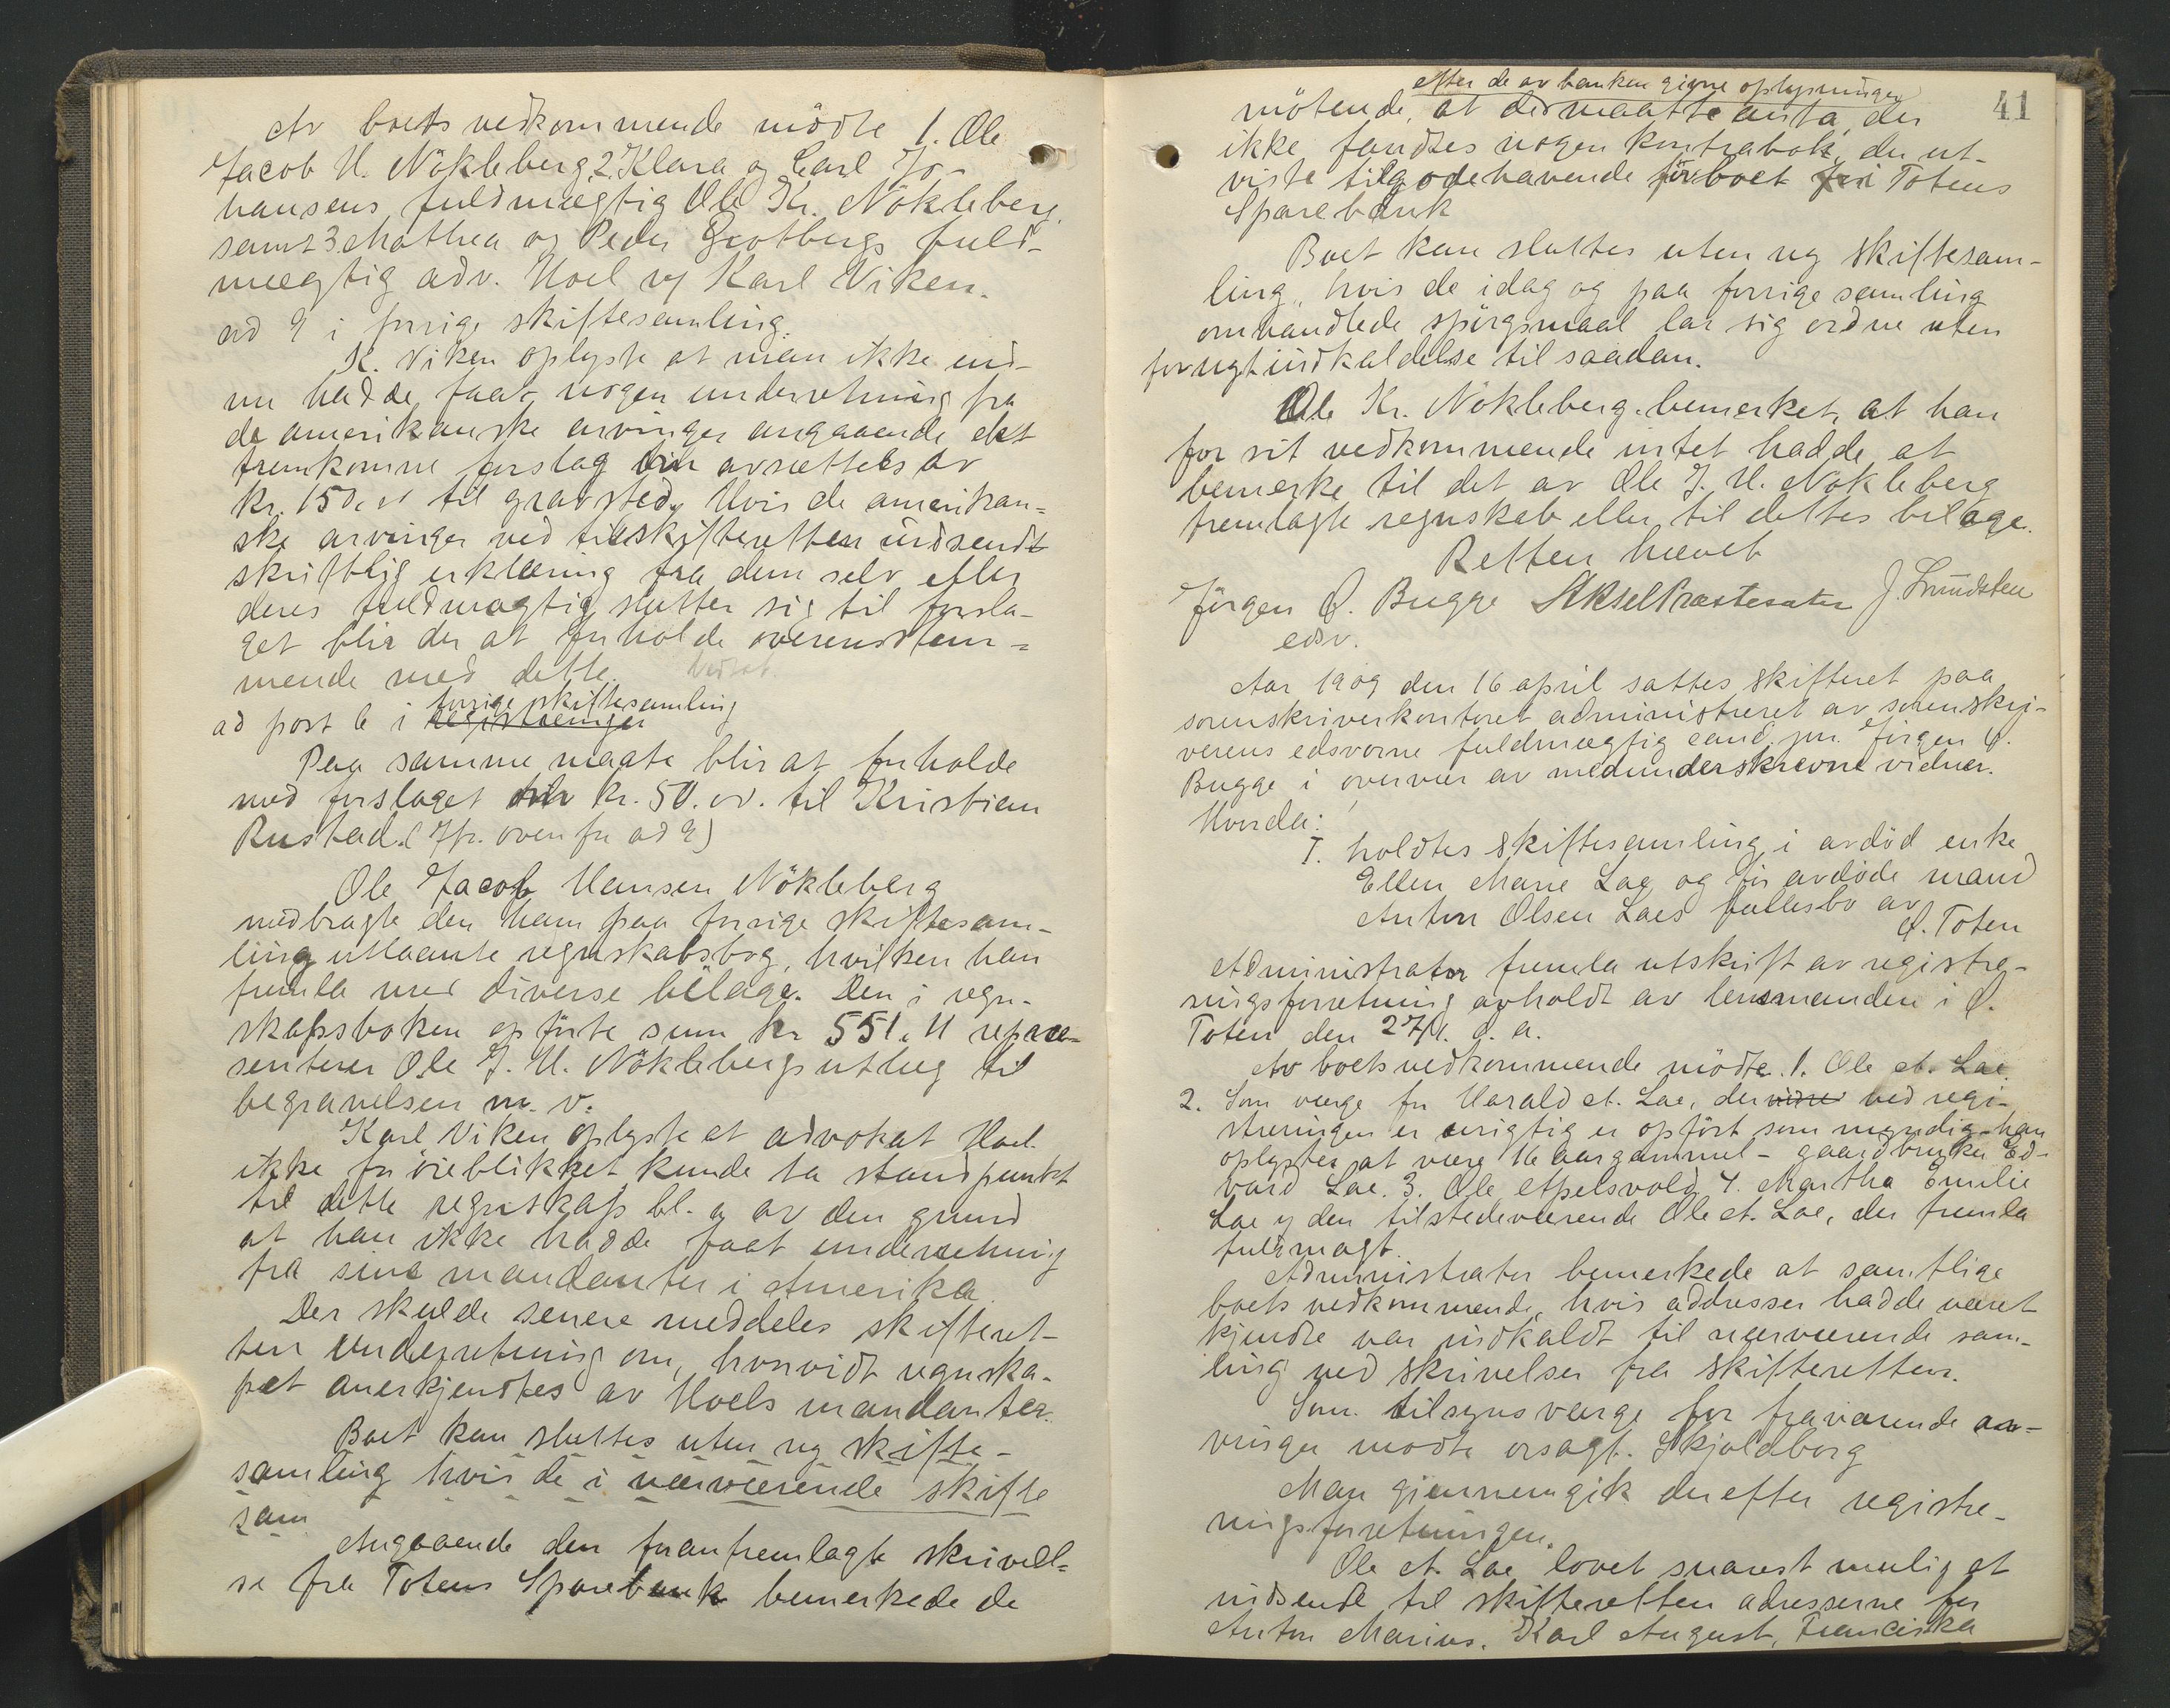 Av boets vedkommende mödte 1. Ole
Jacob H. Nökleberg, 2. Klara og Carl Jo-
hansens fuldmægtig Ole Kr. Nökleberg
samt 3 Mathea og Peder Grotbergs fuld-
mægtig adv. Hoel v/ Karl Viken.
ad 9 i forrige skiftesamling.
K. Viken oplyste at man ikke end-
nu hadde faat nogen underretning fra
de amerikanske arvinger angaaende det
fremkomne forslag om avsættels av
kr. 150.00 til gravsted. Hvis de amerikan=
ske arvinger ved til skifteretten indsendt
skriftlig erklæring fra dem selv eller
deres fuldmægtig slutter sig til forsla-
get blir der at forholde overenstem=
mende med dette.
forrige skiftesamling
ad post 6 i registreringen
Paa samme maate blir at forholde
med forslaget om kr. 50.00. til Kristian
Rustad. (Jfr. ovenfor ad 9)
Ole Jacob Hansen Nökleberg
medbragte den ham paa forrige skiftesam-
ling utlaante regnskabsbog, hvilken han
fremla med diverse bilage. Den i regn-
skapsboken opförte sum kr 551.11 repræ-
senterer Ole J. H. Nöklebergs utlæg til
begravelsen m. v.
Karl Viken oplyste at advokat Hoel
ikke for öieblikket kunde ta standpunkt
til dette regnskap bl. a av den grund
at han ikke hadde faat underretning
fra sine mandanter i Amerika.
Der skulde senere meddeles skifteret-
ten underretning om, hvorvidt regnska-
pet anerkjendtes av Hoels mandanter.
Boet kan sluttes uten ny skifte-
samling hvis de i nærværende skifte
sam
Angaaende den foran fremlagte skrivel=
se fra Totens Sparebank bemerkede de
41
efter de av banken givne oplysninger
mötende, at det maatte anta, der
ikke fandtes nogen kontrabok, der ut-
viste tilgodehavende for boet i Totens
Sparebank
Boet kan sluttes uten ny skiftesam-
ling, hvis de idag og paa forrige samling
omhandlede spörgsmaal lar sig ordne uten
fornyt indkaldelse til saadan.
Ole Kr. Nökleberg bemerket, at han
for sit vedkommende intet hadde at
bemerke til det av Ole J. H. Nökleberg
fremlagte regnskab eller til dettes bilage.
Retten hævet
Jörgen Q. Bugge Aksel Præstesæter J. Lundsten
edsv.
Aar 1909 den 16 april sattes skifteret paa
sorenskriverkontoret administreret av sorenskri-
verens edsvorne fuldmægtig cand. jur. Jörgen Q.
Bugge i overvær av medunderskrevne vidner.
Hvorda:
I. holdtes skiftesamling i avdöd enke
Ellen Marie Lae og för avdöde mand
Anton Olsen Laes fællesbo av
Ö. Toten
Administrator fremla utskrift av registre-
ringsforretning avholdt av lensmanden i Ö.
Toten den 27/1. d. a.
Av boets vedkommende mödte. 1. Ole A. Lae.
2. Som værge for Harald A. Lae, der ved regi-
streringen er urigtig er opfört som myndig - han
oplystes at være 16 aar gammel - gaardbruker Ed-
vard Lae. 3. Ole Apelsvold 4. Martha Emilie
Lae v/ den tilstedeværende Ole A. Lae, der fremla
fuldmagt.
Administrator bemerkede at samtlige
boets vedkommende, hvis addresser hadde været
kjendte var indkaldt til nærværende sam-
ling ved skrivelser fra skifteretten.
Som tilsynsværge for fraværende ar-
vinger mödte orsagf. Skjoldborg
Man gjennemgik derefter registre-
ringsforretningen.
Ole A. Lae lovet snarest mulig at
indsende til skifteretten adresserne for
Anton Marius, Karl August, Franciska